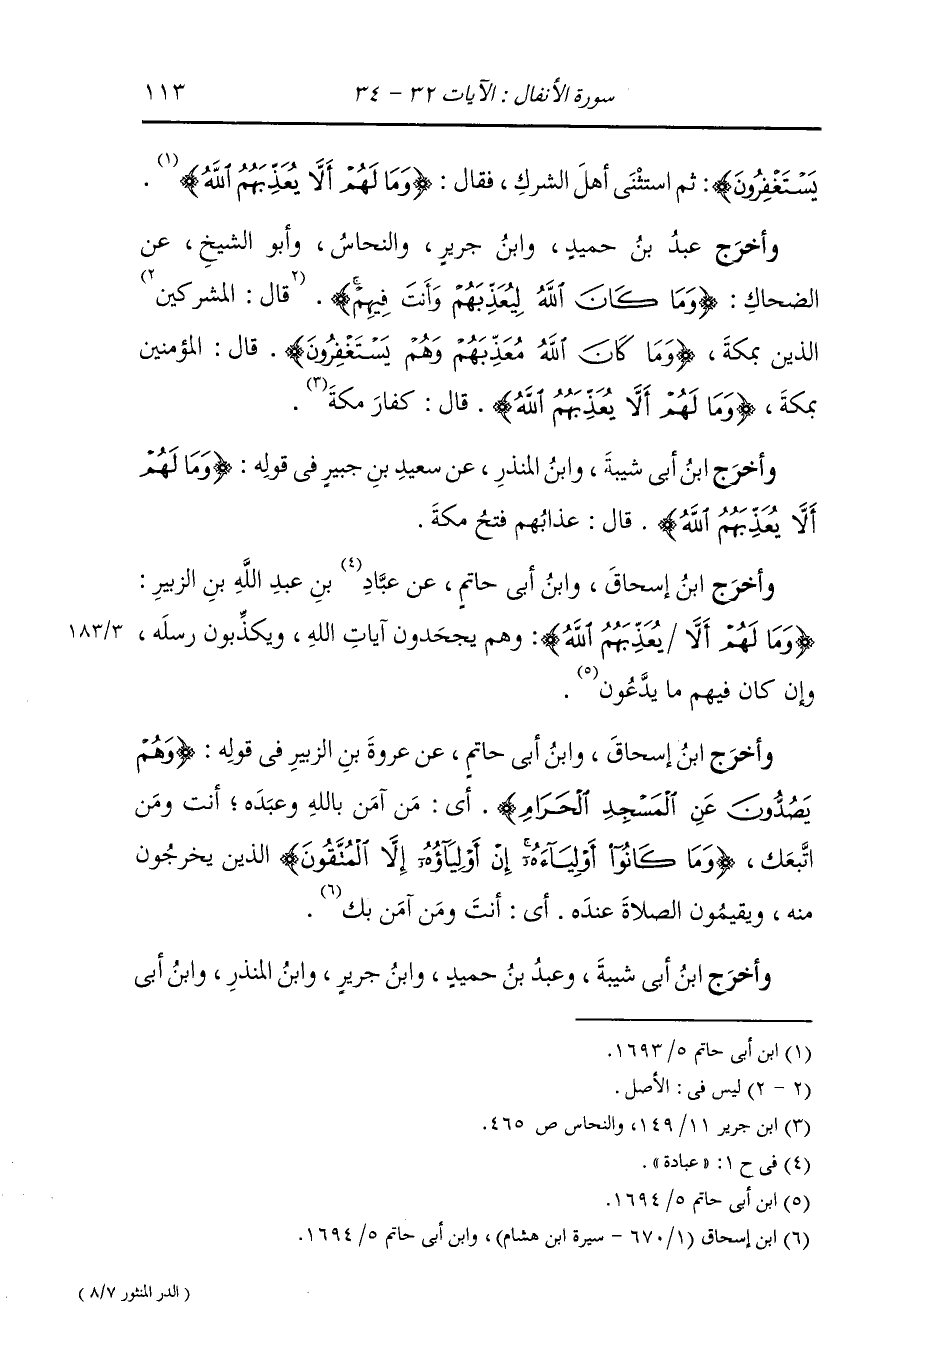 سورة الأنفال : الآيات ٣٢ - ٣٤ ١١٣
يَسْتَغْفِرُونَ﴾: ثم استثْنَى أهلَ الشركِ ، فقال : ﴿وَمَا لَهُمْ أَلَّا يُعَذِّبَهُمُ ٱللَّهُ﴾(١) .
وأخرَج عبدُ بنُ حميدٍ ، وابنُ جريرٍ ، والنحاسُ ، وأبو الشيخِ ، عن
الضحاكِ : ﴿وَمَا كَانَ ٱللَّهُ لِيُعَذِّبَهُمْ وَأَنتَ فِيهِمْۚ﴾ . (٢قال : المشركين٢)
الذين بمكةَ ، ﴿وَمَا كَانَ ٱللَّهُ مُعَذِّبَهُمْ وَهُمْ يَسْتَغْفِرُونَ﴾ . قال : المؤمنين
بمكةَ ، ﴿وَمَا لَهُمْ أَلَّا يُعَذِّبَهُمُ ٱللَّهُ﴾ . قال : كفارَ مكةَ(٣) .
وأخرَج ابنُ أبى شيبةَ ، وابنُ المنذرِ ، عن سعيدِ بنِ جبيرٍ فى قولِه : ﴿وَمَا لَهُمْ
أَلَّا يُعَذِّبَهُمُ ٱللَّهُ﴾ . قال : عذابُهم فتحُ مكةَ .
وأخرَج ابنُ إسحاقَ ، وابنُ أبى حاتمٍ ، عن عبَّادِ(٤) بنِ عبدِ اللَّهِ بنِ الزبيرِ :
﴿وَمَا لَهُمْ أَلَّا /يُعَذِّبَهُمُ ٱللَّهُ﴾: وهم يجحَدون آياتِ اللهِ ، ويكذِّبون رسلَه ، ١٨٣/٣
وإن كان فيهم ما يدَّعُون(٥) .
وأخرَج ابنُ إسحاقَ ، وابنُ أبى حاتمٍ ، عن عروةَ بنِ الزبيرِ فى قولِه : ﴿وَهُمْ
يَصُدُّونَ عَنِ ٱلْمَسْجِدِ ٱلْحَرَامِ﴾ . أى : مَن آمَن باللهِ وعبَدَه ؛ أنت ومَن
اتَّبعَك ، ﴿وَمَا كَانُوٓا۟ أَوْلِيَآءَهُۥٓۚ إِنْ أَوْلِيَآؤُهُۥٓ إِلَّا ٱلْمُتَّقُونَ﴾ الذين يخرجُون
منه ، ويقيمُون الصلاةَ عندَه . أى : أنتَ ومَن آمَن بك(٦) .
وأخرَج ابنُ أبى شيبةَ ، وعبدُ بنُ حميدٍ ، وابنُ جريرٍ ، وابنُ المنذرِ ، وابنُ أبى
(١) ابن أبى حاتم ٥/ ١٦٩٣.
(٢ - ٢) ليس فى : الأصل .
(٣) ابن جرير ١١/ ١٤٩، والنحاس ص ٤٦٥.
(٤) فى ح ١: «عبادة» .
(٥) ابن أبى حاتم ٥/ ١٦٩٤.
(٦) ابن إسحاق (١/ ٦٧٠ - سيرة ابن هشام)، وابن أبى حاتم ٥/ ١٦٩٤.
( الدر المنثور ٨/٧ )